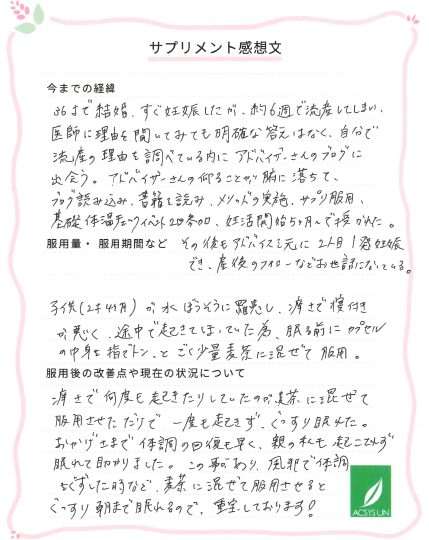 サプリメント感想文
今までの経緯
36才で結婚、すぐ妊娠したが、約6週で流産してしまい、
医師に理由を聞いてみても明確な答えはなく、自分で
流産の理由を調べている内にアドバイザーさんのブログに
出会う。アドバイザーさんの仰ることが腑に落ちて、
ブログ読み込み、書籍を読み、メソッドの実施、サプリ服用、
基礎体温チェックイベント2回参加、妊活開始5ヶ月で授かれた。
服用量・服用期間など その後もアドバイスを元に2人目1発妊娠
でき、産後のフォローなどお世話になっている。
子供(2才4ヶ月)が水ぼうそうに罹患し、痒さで寝付き
が悪く、途中で起きてしまっていた為、眠る前にカプセル
の中身を指でトン、とごく少量麦茶に混ぜて服用。
服用後の改善点や現在の状況について
痒さで何度も起きたりしていたのが麦茶に混ぜて
服用させただけで一度も起きず、ぐっすり眠れた。
おかげさまで体調の回復も早く、親の私も起こされず
眠れて助かりました。この事があり、風邪で体調
くずした時など、麦茶に混ぜて服用させると
ぐっすり朝まで眠れるので、重宝しております!
ACSYS UN